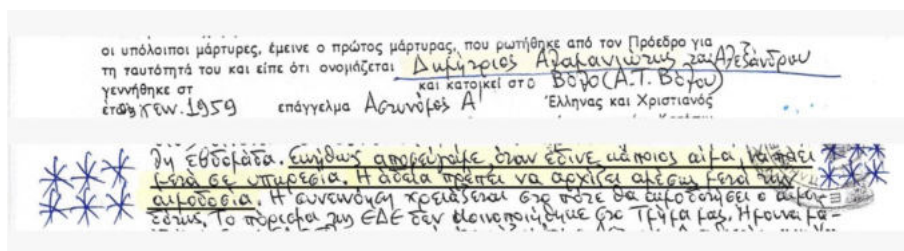 οι υπόλοιποι μάρτυρες, έμεινε ο πρώτος μάρτυρας, που ρωτήθηκε από τον Πρόεδρο για
τη ταυτότητά του και είπε ότι ονομάζεται Δημήτριος Αλαμανιώτης του Αλεξάνδρου
γεννήθηκε στ και κατοικεί στο Βόλο (Α.Τ. Βόλου)
έτος γεν. 1959 επάγγελμα Αστυνόμος Α' Έλληνας και Χριστιανός
θη εβδομάδα. Συνήθως αποφεύγαμε όταν έδινε κάποιος αίμα, να πάει
μετά σε υπηρεσία. Η άδεια πρέπει να αρχίζει αμέσως μετά την
αιμοδοσία. Η συνεννόηση χρειάζεται στο πότε θα αιμοδοτήσει ο αιμο-
δότης. Το πόρισμα της ΕΔΕ δεν κοινοποιήθηκε στο Τμήμα μας. Ήμουνα